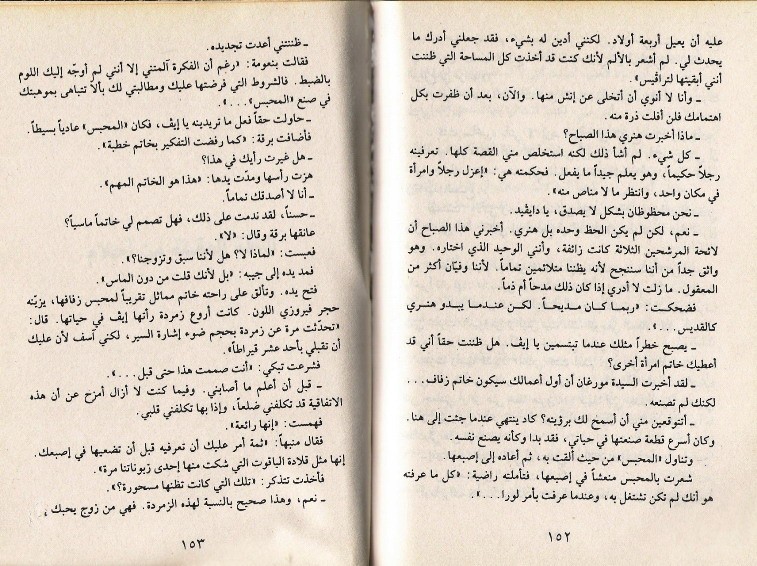 عليه أن يعيل أربعة أولاد. لكنني أدين له بشيء، فقد جعلني أدرك ما
يحدث لي. لم أشعر بالألم لأنك كنت قد أخذت كل المساحة التي ظننت
أنني أبقيتها لتراڤيس».
ـ وأنا لا أنوي أن أتخلى عن إنش منها. والآن، بعد أن ظفرت بكل
اهتمامك فلن أفلت ذرة منه.
ـ ماذا أخبرت هنري هذا الصباح؟
ـ كل شيء. لم أشأ ذلك لكنه استخلص مني القصة كلها. تعرفينه
رجلاً حكيماً، وهو يعلم جيداً ما يفعل. فحكمته هي: «إعزل رجلاً وامرأة
في مكان واحد، وانتظر ما لا مناص منه».
ـ نحن محظوظان بشكل لا يصدق، يا دايڤيد.
ـ نعم، لكن لم يكن الحظ وحده بل هنري. أخبرني هذا الصباح أن
لائحة المرشحين الثلاثة كانت زائفة، وأنني الوحيد الذي اختاره. وهو
واثق جداً من أننا سننجح لأنه يظننا متلائمين تماماً. لأننا وفيّان أكثر من
المعقول. ما زلت لا أدري إذا كان ذلك مدحاً أم ذماً.
فضحكت: «ربما كان مديحاً. لكن عندما يبدو هنري
كالقديس...».
ـ يصبح خطراً مثلك عندما تبتسمين يا إيڤ. هل ظننت حقاً أني قد
أعطيك خاتم امرأة أخرى؟
ـ لقد أخبرت السيدة مورغان أن أول أعمالك سيكون خاتم زفاف...
لكنك لم تصنعه.
ـ أتتوقعين مني أن أسمح لك برؤيته؟ كاد ينتهي عندما جئت إلى هنا.
وكان أسرع قطعة صنعتها في حياتي، فقد بدا وكأنه يصنع نفسه.
وتناول «المحبس» من حيث ألقت به، ثم أعاده إلى إصبعها.
شعرت بالمحبس منعشاً في إصبعها، فتأملته راضية: «كل ما عرفته
هو أنك لم تكن تشتغل به، وعندما عرفت بأمر لورا...»
١٥٢
ـ ظننتني أعدت تجديده.
فقالت بنعومة: «رغم أن الفكرة آلمتني إلا أنني لم أوجّه إليك اللوم
بالضبط. فالشروط التي فرضتها عليك ومطالبتي لك بألا تتباهى بموهبتك
في صنع «المحبس»...».
ـ حاولت حقاً فعل ما تريدينه يا إيڤ، فكان «المحبس» عادياً بسيطاً.
فأضافت برقة: «كما رفضت التفكير بخاتم خطبة».
ـ هل غيرت رأيك في هذا؟
هزت رأسها ومدّت يدها: «هذا هو الخاتم المهم».
ـ أنا لا أصدقك تماماً.
ـ حسناً، لقد ندمت على ذلك، فهل تصمم لي خاتماً ماسياً؟
عانقها برقة وقال: «لا».
فعبست: «لماذا لا؟ هل لأننا سبق وتزوجنا؟».
فمد يده إلى جيبه: «بل لأنك قلت من دون الماس».
فتح يده. وتألق على راحته خاتم مماثل تقريباً لمحبس زفافها، يزيّنه
حجر فيروزي اللون. كانت أروع زمردة رأتها إيڤ في حياتها. قال:
«تحدّثت مرة عن زمردة بحجم ضوء إشارة السير، لكني آسف لأن عليك
أن تقبلي بأحد عشر قيراطاً».
فشرعت تبكي: «أنت صممت هذا حتى قبل...».
ـ قبل أن أعلم ما أصابني. وفيما كنت لا أزال أمزح عن أن هذه
الاتفاقية قد تكلفني ضلعاً، وإذا بها تكلفني قلبي.
فهمست: «إنها رائعة».
فقال منبهاً: «ثمة أمر عليك أن تعرفيه قبل أن تضعيها في إصبعك.
إنها مثل قلادة الياقوت التي شكت منها إحدى زبوناتنا مرة».
فأخذت تتذكر: «تلك التي كانت تظنها مسحورة؟».
ـ نعم، وهذا صحيح بالنسبة لهذه الزمردة. فهي من زوج يحبك
١٥٣